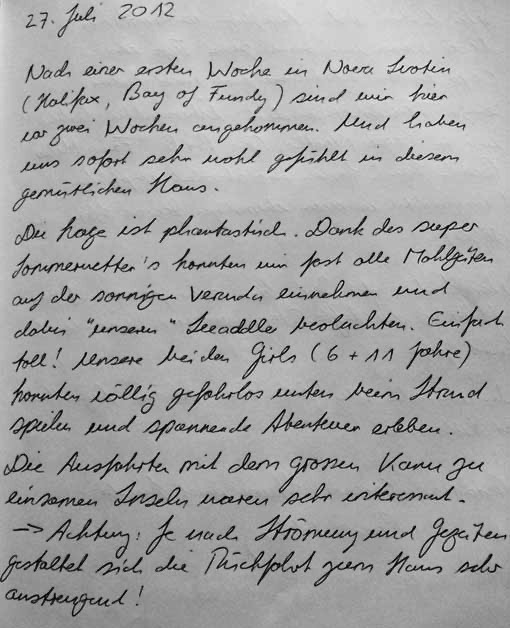 27. Juli 2012
Nach einer ersten Woche in Nova Scotia
(Halifax, Bay of Fundy) sind wir hier
vor zwei Wochen angekommen. Und haben
uns sofort sehr wohl gefühlt in diesem
gemütlichen Haus.
Die Lage ist phantastisch. Dank des super
Sommerwetter's konnten wir fast alle Mahlzeiten
auf der sonnigen Veranda einnehmen und
dabei "unseren" Seeadler beobachten. Einfach
toll! Unsere beiden Girls (6 + 11 Jahre)
konnten völlig gefahrlos unten beim Strand
spielen und spannende Abenteuer erleben.
Die Ausfahrten mit dem grossen Kanu zu
einsamen Inseln waren sehr interessant.
→ Achtung: Je nach Strömung und Gezeiten
gestaltet sich die Rückfahrt zum Haus sehr
anstrengend!